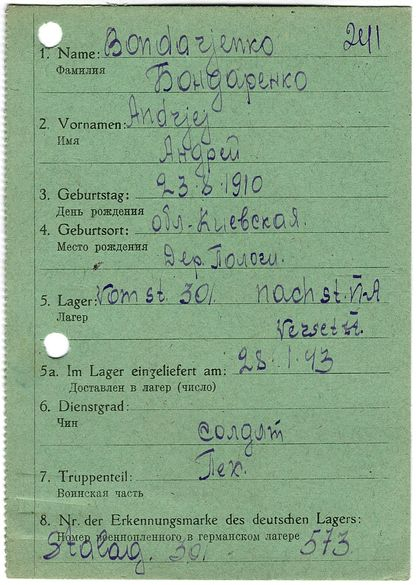 1. Name: Bondarjenko 2411
Фамилия
Бондаренко
2. Vornamen: Andrjej
Имя
Андрей
3. Geburtstag: 23.8.1910
День рождения
4. Geburtsort: обл-Киевская.
Место рождения
Дер. Пологи.
5. Lager: Vom st. 301 nach st.
Лагер
Verset
5a. Im Lager eingeliefert am: 28.1.43
Доставлен в лагер (число)
6. Dienstgrad:
Чин
солдат
Пех.
7. Truppenteil:
Воинская часть
8. Nr. der Erkennungsmarke des deutschen Lagers:
Номер военнопленного в германском лагере
Stalag. 301 573